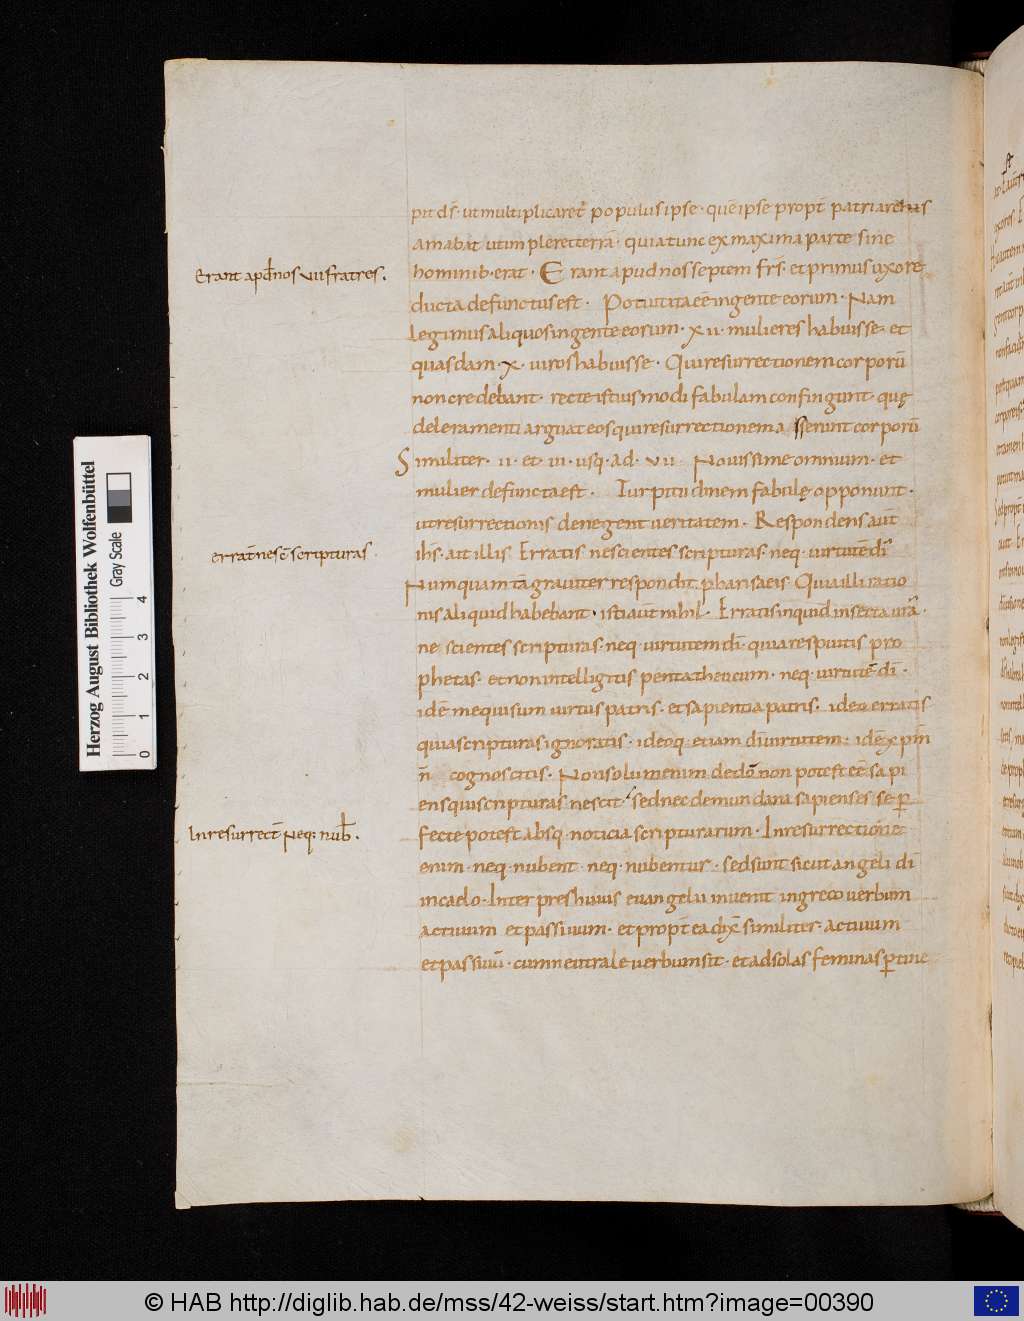 pit ds̄· ut multiplicaret̄ populus ipse· quē ipse propt̄ patriarchas
amabat ut impleret terrā· quia tunc ex maxima parte sine
hominib· erat· Erant apud nos septem frs̄· et primus uxore
Erant apd̄ nos vii fratres.
ducta defunctus est· Potuit ita eē in gente eorum· Nam
legimus aliquos in gente eorum· xii· mulieres habuisse et
quasdam· x· uiros habuisse· Qui resurrectionem corporū
non credebant· recte istius modi fabulam confingunt· quę
deleramenti arguat eos qui resurrectionem asserunt corporū
Similiter· ii· et· iii· usq· ad· vii· Nouissime omnium· et
mulier defuncta est· Turpitudinem fabulę opponunt·
ut resurrectionis denegent ueritatem· Respondens aūt
ihs̄· ait illis Erratis nescientes scripturas· neq· uirtutē dī
errat̄ nesc̄ scripturas·
Numquam tā grauiter respondit pharisaeis· Quia illi ratio
nis aliquid habebant· isti aut nihil· Erratis inquid in secta urā·
ne scientes scripturas· neq· uirtutem dī· quia respuitis pro
phetas· et non intelligitis pentatheucum· neq· uirtutē dī·
idē me qui sum uirtus patris· et sapientia patris· ideo erratis
quia scripturas ignoratis· ideoq· etiam dī uirtutem· idē xpm̄
n̄ cognoscitis· Non solum enim de dō non potest eē sapi
ens qui scripturas nescit· sed nec de mundana sapienses se per
fecte potest absq· noticia scripturarum· In resurrectione
In resurrect̄ Neq· nub·
enim· neq· nubent· neq· nubentur· sed sunt sicut angeli dī
in caelo· Interpres huius euangelii inuenit in greco uerbum
actiuum et passiuum· et propt̄ ea dix̄ similiter· actiuum
et passiuū· cum neutrale uerbum sit· et ad solas feminas ꝑtine
Herzog August Bibliothek Wolfenbüttel
Gray Scale
0 1 2 3 4
© HAB http://diglib.hab.de/mss/42-weiss/start.htm?image=00390